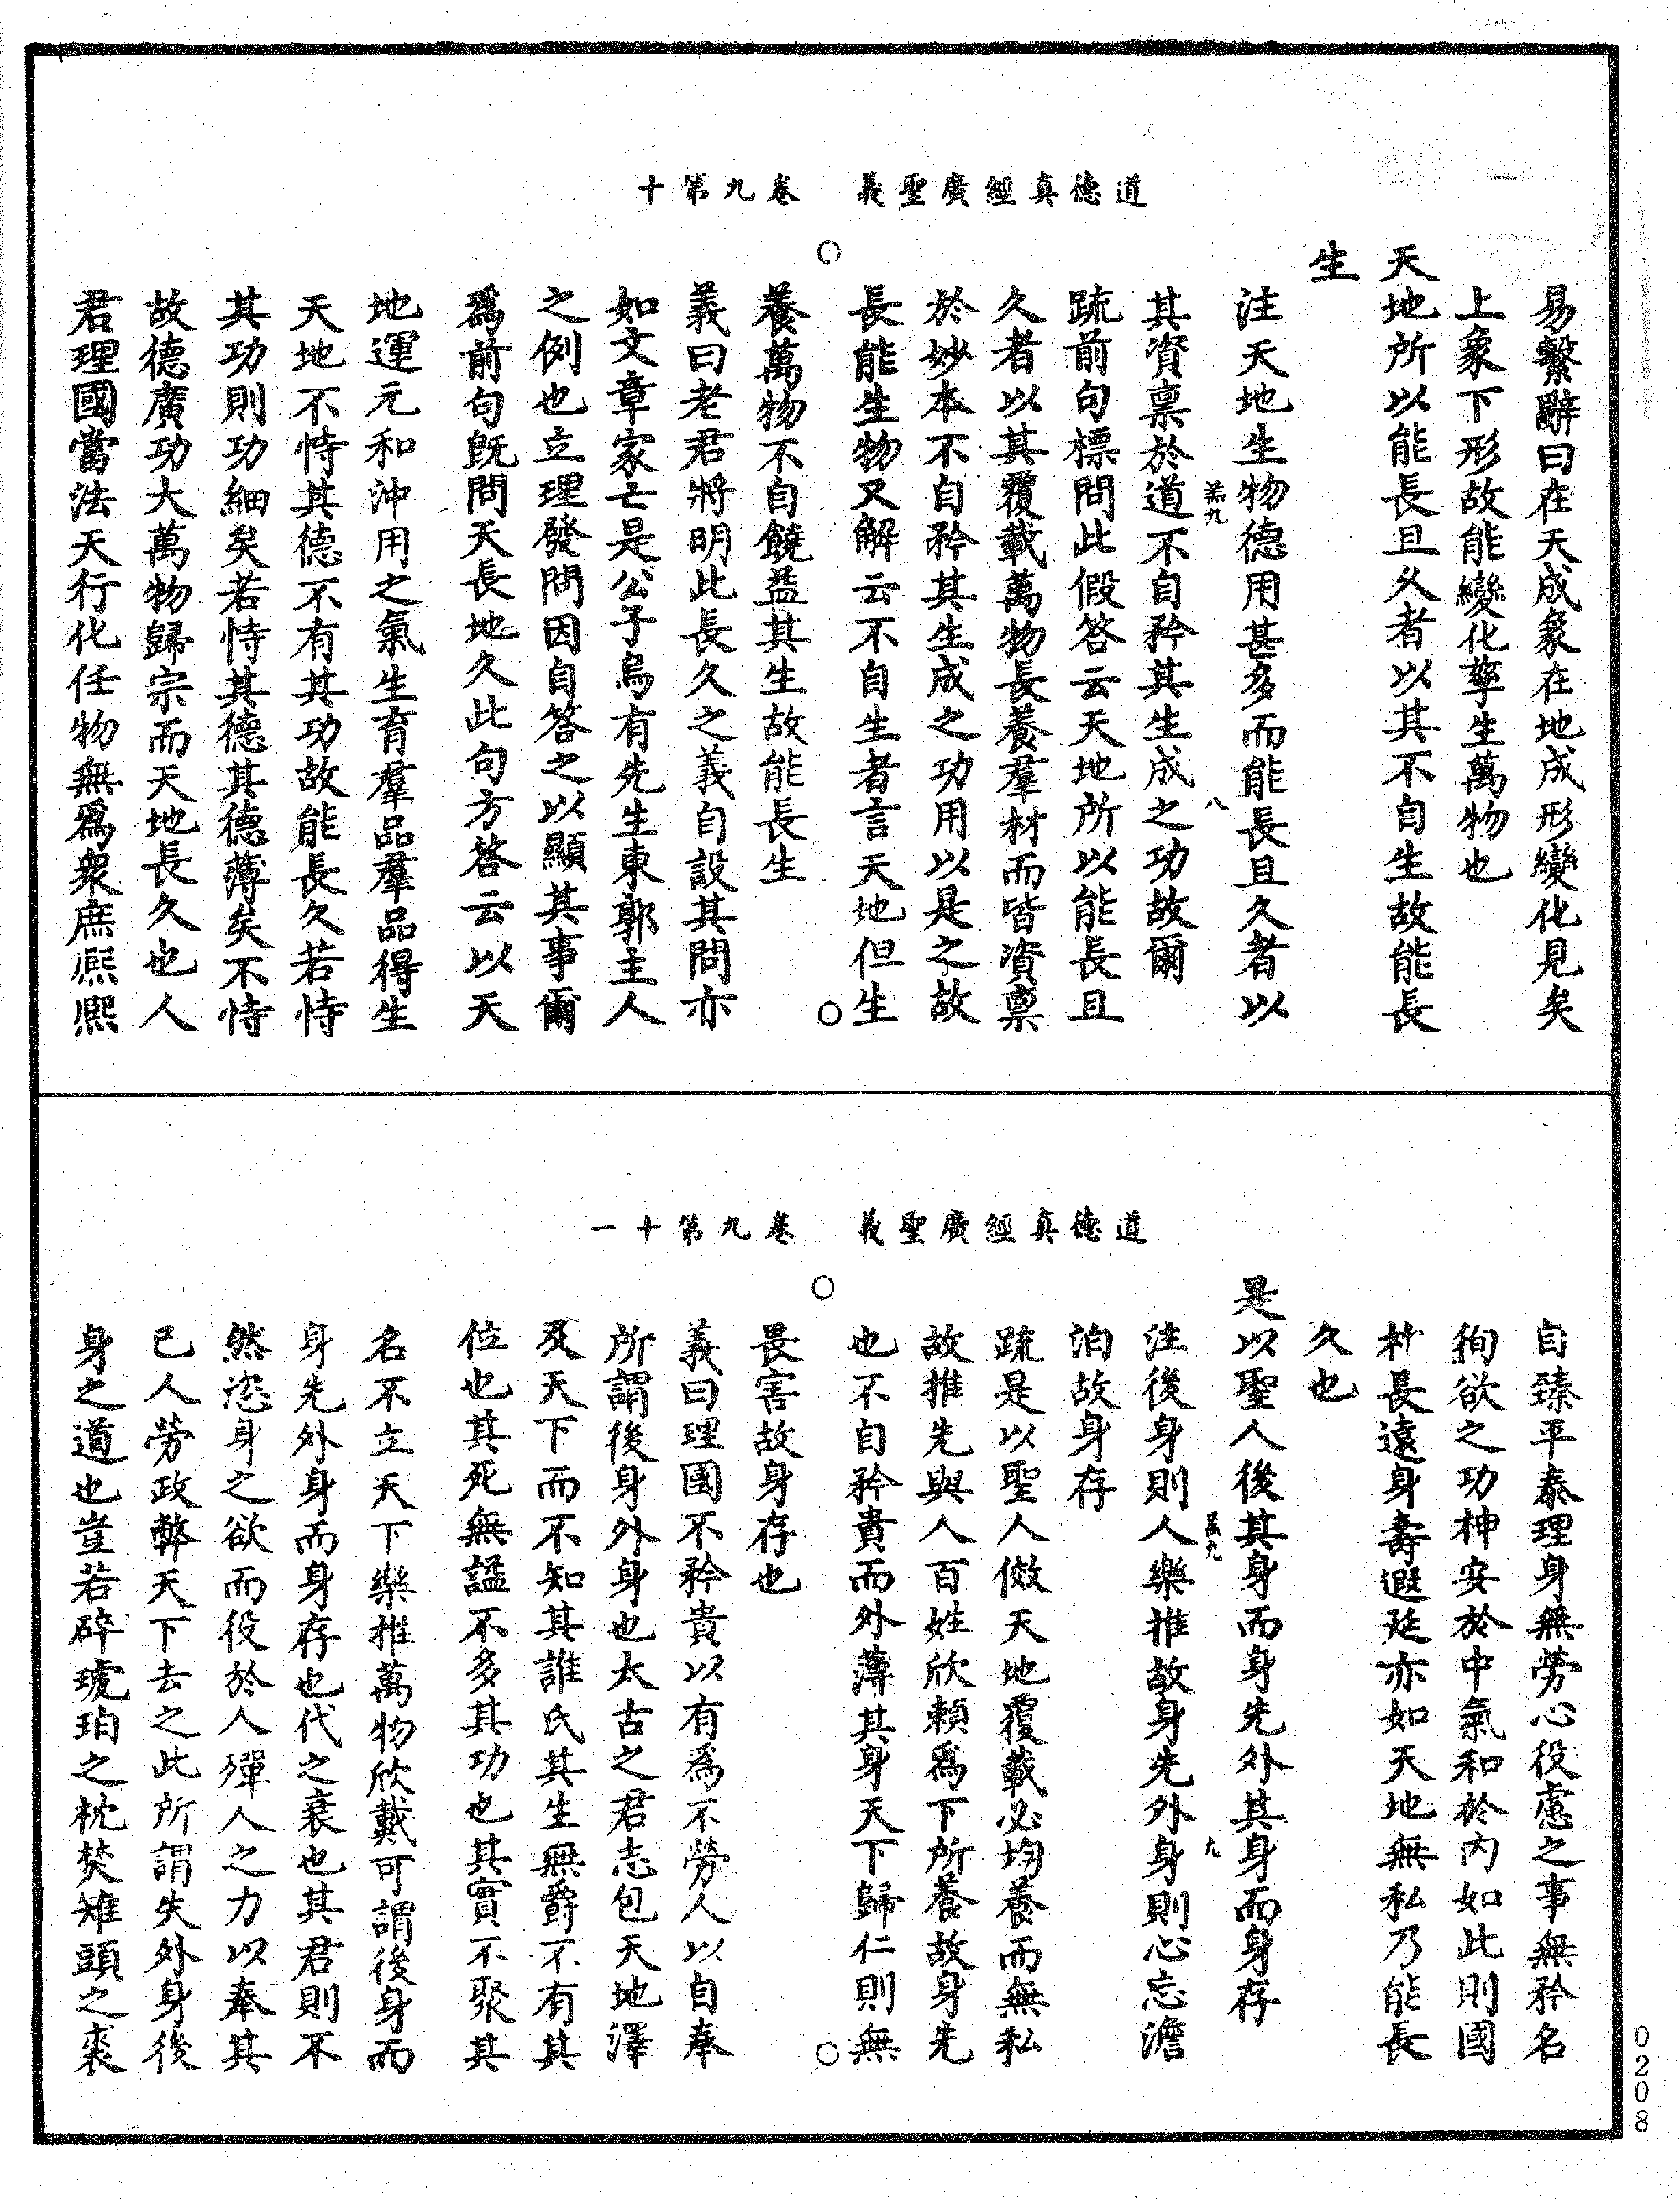 道德真經廣聖義　卷九第十
易繫辭曰在天成象在地成形變化見矣
上象下形故能變化孳生萬物也
天地所以能長且久者以其不自生故能長
生
注天地生物德用甚多而能長且久者以
八
其資稟於道不自矜其生成之功故爾
疏前句標問此假答云天地所以能長且
久者以其覆載萬物長養羣材而皆資稟
於妙本不自矜其生成之功用以是之故
長能生物又解云不自生者言天地但生
養萬物不自饒益其生故能長生
義曰老君將明此長久之義自設其問亦
如文章家亡是公子烏有先生東郭主人
之例也立理發問因自答之以顯其事爾
爲前句既問天長地久此句方答云以天
地運元和沖用之氣生育羣品羣品得生
天地不恃其德不有其功故能長久若恃
其功則功細矣若恃其德其德薄矣不恃
故德廣功大萬物歸宗而天地長久也人
君理國當法天行化任物無爲衆庶熙熙
道德真經廣聖義　卷九第十一
自臻平泰理身無勞心役慮之事無矜名
徇欲之功神安於中氣和於內如此則國
朴長遠身壽遐延亦如天地無私乃能長
久也
是以聖人後其身而身先外其身而身存
九
注後身則人樂推故身先外身則心忘澹
泊故身存
疏是以聖人倣天地覆載必均養而無私
故推先與人百姓欣賴爲下所養故身先
也不自矜貴而外薄其身天下歸仁則無
畏害故身存也
義曰理國不矜貴以有爲不勞人以自奉
所謂後身外身也太古之君志包天地澤
及天下而不知其誰氏其生無爵不有其
位也其死無謚不多其功也其實不聚其
名不立天下樂推萬物欣戴可謂後身而
身先外身而身存也代之衰也其君則不
然恣身之欲而役於人殫人之力以奉其
己人勞政弊天下去之此所謂失外身後
身之道也豈若碎琥珀之枕焚雉頭之裘
0208